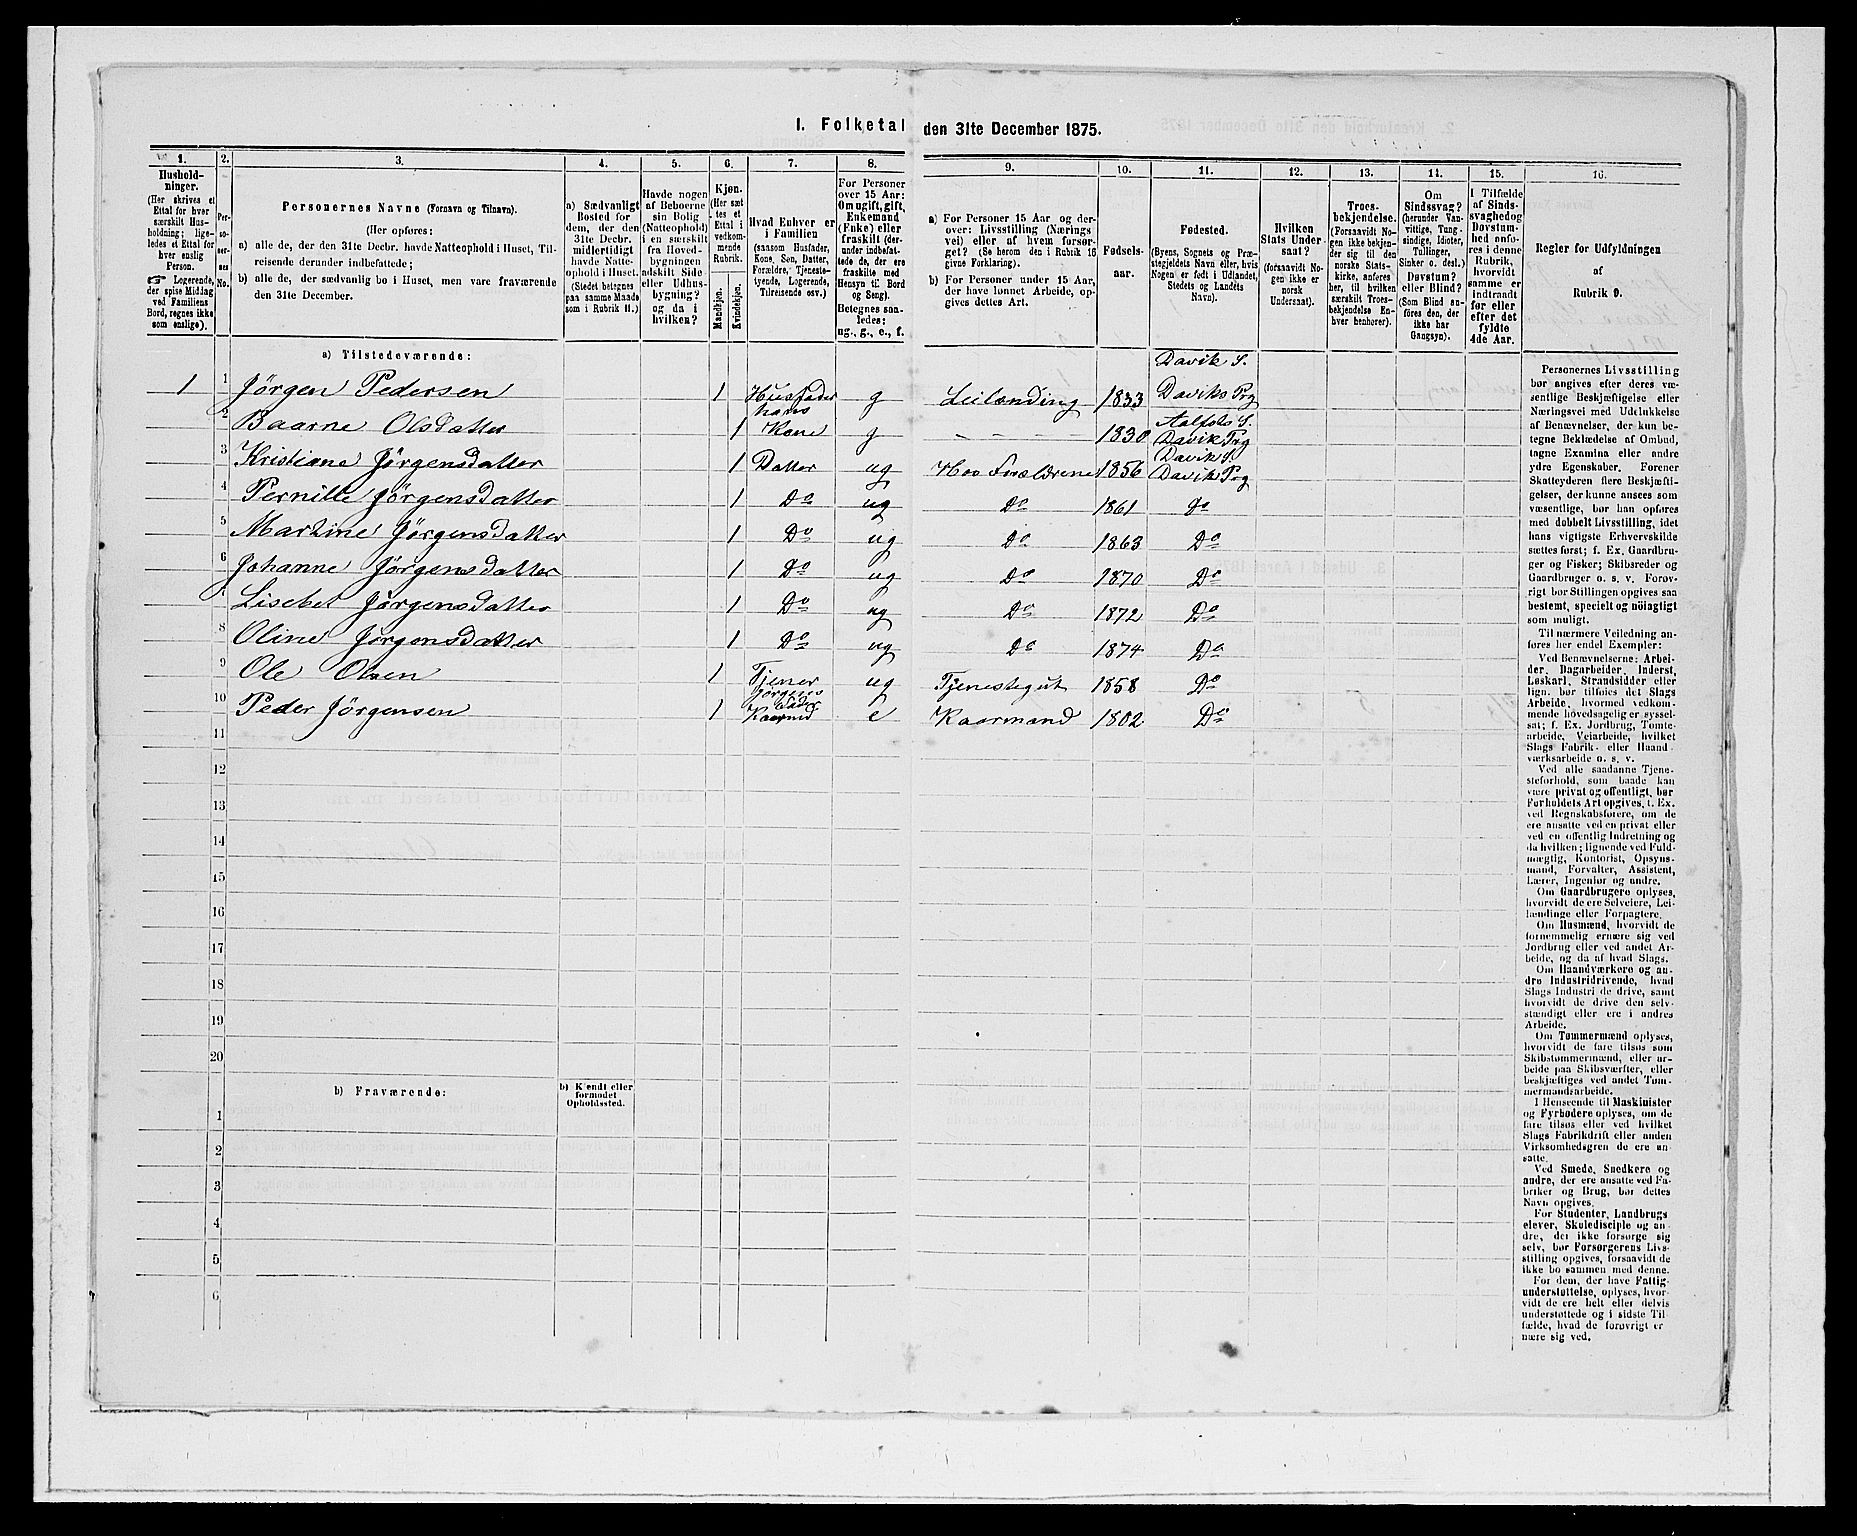 I. Folketal den 31te December 1875.
1. 2. 3. 4. 5. 6. 7. 8. 9. 10. 11. 12. 13. 14. 15. 16.
Hushold-
ninger.
(Her skrives et
Ettal for hver
særskilt Hus-
holdning; lige-
ledes et Ettal for
hver enslig
Person.
☞ Logerende,
der spise Middag
ved Familiens
Bord, regnes ikke
som enslige).
Per-
soner-
nes
No.
Personernes Navne (Fornavn og Tilnavn).
(Her opføres:
a) alle de, der den 31te Decbr. havde Natteophold i Huset, Til-
reisende derunder indbefattede;
b) alle de, der sædvanlig bo i Huset, men vare fraværende
den 31te December.
a) Sædvanligt
Bosted for
dem, der den
31te Decbr.
midlertidigt
havde Natte-
ophold i Huset.
(Stedet betegnes
paa samme Maade
som i Rubrik 11.)
Havde nogen
af Beboerne
sin Bolig
(Natteophold)
i en særskilt
fra Hoved-
bygningen
adskilt Side-
eller Udhus-
bygning?
og da i
hvilken?
Kjøn.
(Her sæt-
tes et
Ettal i
vedkom-
mende
Rubrik.
Mandkjøn.
Kvindekjøn.
Hvad Enhver er
i Familien
(saasom Husfader,
Kone, Søn, Datter,
Forældre, Tjeneste-
tyende, Logerende,
Tilreisende osv.)
For Personer
over 15 Aar:
Om ugift, gift,
Enkemand
(Enke) eller
fraskilt (der-
under indbefat-
tede de, der ere
fraskilte med
Hensyn til Bord
og Seng).
Betegnes saa-
ledes:
ug., g., e., f.
a) For Personer 15 Aar og der-
over: Livsstilling (Nærings
vei) eller af hvem forsør-
get? (Se herom den i Rubrik 16
givne Forklaring).
b) For Personer under 15 Aar,
der have lønnet Arbeide, op-
gives dettes Art.
Fødsels-
aar.
Fødested.
(Byens, Sognets og Præ-
stegjeldets Navn eller, hvis
Nogen er født i Udlandet,
Stedets og Landets
Navn).
Hvilken
Stats Under-
saat?
(forsaavidt No-
gen ikke er
norsk
Undersaat).
Troes-
bekjendelse.
(Forsaavidt No-
gen ikke bekjen-
der sig til den
norske Stats-
kirke, anføres
her, til hvilken
særskilt Troes-
bekjendelse En-
hver henhører).
Om
Sindssvag?
(herunder Van-
vittige, Tung-
sindige, Idioter,
Tullinger,
Sinker o. desl.)
Døvstum?
eller Blind?
(Som Blind an-
føres den, der
ikke har
Gangsyn).
I Tilfælde
af Sinds-
svaghed og
Døvstum-
hed anfø-
res i denne
Rubrik,
hvorvidt
samme er
indtraadt
før eller
efter det
fyldte
4de Aar.
Regler for Udfyldningen
af
Rubrik 9.
a) Tilstedeværende:
Davik S.
1 1 Jörgen Pedersen 1 Husfader g Leilænding 1833 Daviks Prg
hans Aalfots S.
2 Baarne Olsdatter 1 Kone g - - - - 1830 Davik Prg
Davik S.
3 Kristiane Jörgensdatter 1 Datter ug Hos Forældrene 1856 Davik Prg
4 Pernille Jörgensdatter 1 Do ug Do 1861 do
5 Martine Jörgensdatter 1 Do ug Do 1863 Do
6 Johanne Jörgensdatter 1 Do ug Do 1870 Do
Lisebet Jörgensdatter 1 Do ug Do 1872 Do
8 Oline Jörgensdatter 1 Do ug Do 1874 Do
9 Ole Olsen 1 Tjener ug Tjenestegut 1858 Do
Jörgens
fader
10 Peder Jörgensen 1 Kaarmd e Kaarmand 1802 Do
11
12
13
14
15
16
17
18
19
20
b) Fraværende:
b) Kjendt eller
formodet
Opholdssted.
1
2
3
4
5
6
Personernes Livsstilling
bør angives efter deres væ-
sentlige Beskjæftigelse eller
Næringsvei med Udelukkelse
af Benævnelser, der kun be-
tegne Beklædelse af Ombud,
tagne Examina eller andre
ydre Egenskaber. Forener
Skatteyderen flere Beskjæfti-
gelser, der kunne ansees som
væsentlige, bør han opføres
med dobbelt Livsstilling, idet
hans vigtigste Erhvervskilde
sættes først; f. Ex. Gaardbru-
ger og Fisker; Skibsreder og
Gaardbruger o. s. v. Forøv-
rigt bør Stillingen opgives saa
bestemt, specielt og nöiagtigt
som muligt.
Til nærmere Veiledning an-
føres her endel Exempler:
Ved Benævnelserne: Arbei-
der, Dagarbeider, Inderst,
Løskarl, Strandsidder eller
lign. bør tilføies det Slags
Arbeide, hvormed vedkom-
mende hovedsagelig er syssel-
sat; f. Ex. Jordbrug, Tomte-
arbeide, Veiarbeide, hvilket
Slags Fabrik- eller Haand-
værksarbeide o. s. v.
Ved alle saadanne Tjene-
steforhold, som baade kan
være privat og offentligt, bør
Forholdets Art opgives, t. Ex.
ved Regnskabsførere, om de
ere ansatte ved en privat eller
ved en offentlig Indretning og
da hvilken; lignende ved Fuld-
mægtig, Kontorist, Opsyns-
mand, Forvalter, Assistent,
Lærer, Ingeniør og andre.
Om Gaardbrugere oplyses,
hvorvidt de ere Selveiere, Lei-
lændinge eller Forpagtere.
Om Husmænd, hvorvidt de
fornemmelig ernære sig ved
Jordbrug eller ved andet Ar-
beide, og da af hvad Slags.
Om Haandværkere og an-
dre Industridrivende, hvad
Slags Industri de drive, samt
hvorvidt de drive den selv-
stændigt eller ere i andres
Arbeide.
Om Tømmermænd oplyses,
hvorvidt de fare tilsøs som
Skibstømmermænd, eller ar-
beide paa Skibsværfter, eller
beskjæftiges ved andet Tøm-
mermandsarbeide.
I Henseende til Maskinister
og Fyrbødere oplyses, om de
fare tilsøs eller ved hvilket
Slags Fabrikdrift eller anden
Virksomhedsgren de ere an-
satte.
Ved Smede, Snedkere og
andre, der ere ansatte ved Fa-
briker og Brug, bør dettes
Navn opgives.
For Studenter, Landbrugs
elever, Skoledisciple og an-
dre, der ikke forsørge sig
selv, bør Forsørgerens Livs-
stilling opgives, forsaavidt de
ikke bo sammen med denne.
For dem, der have Fattig-
understøttelse, oplyses, hvor-
vidt de ere helt eller delvis
understøttede og i sidste Til-
fælde, hvad de forøvrigt er
nære sig ved.